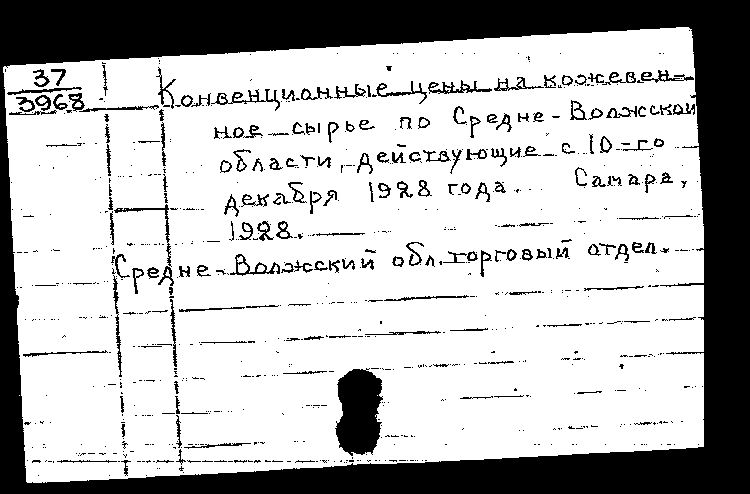 37
3968
Конвенционные цены на кожевен-
ное сырье по Средне-Волжской
области, действующие с 10-го
декабря 1928 года. Самара,
1928.
Средне-Волжский обл.торговый отдел.